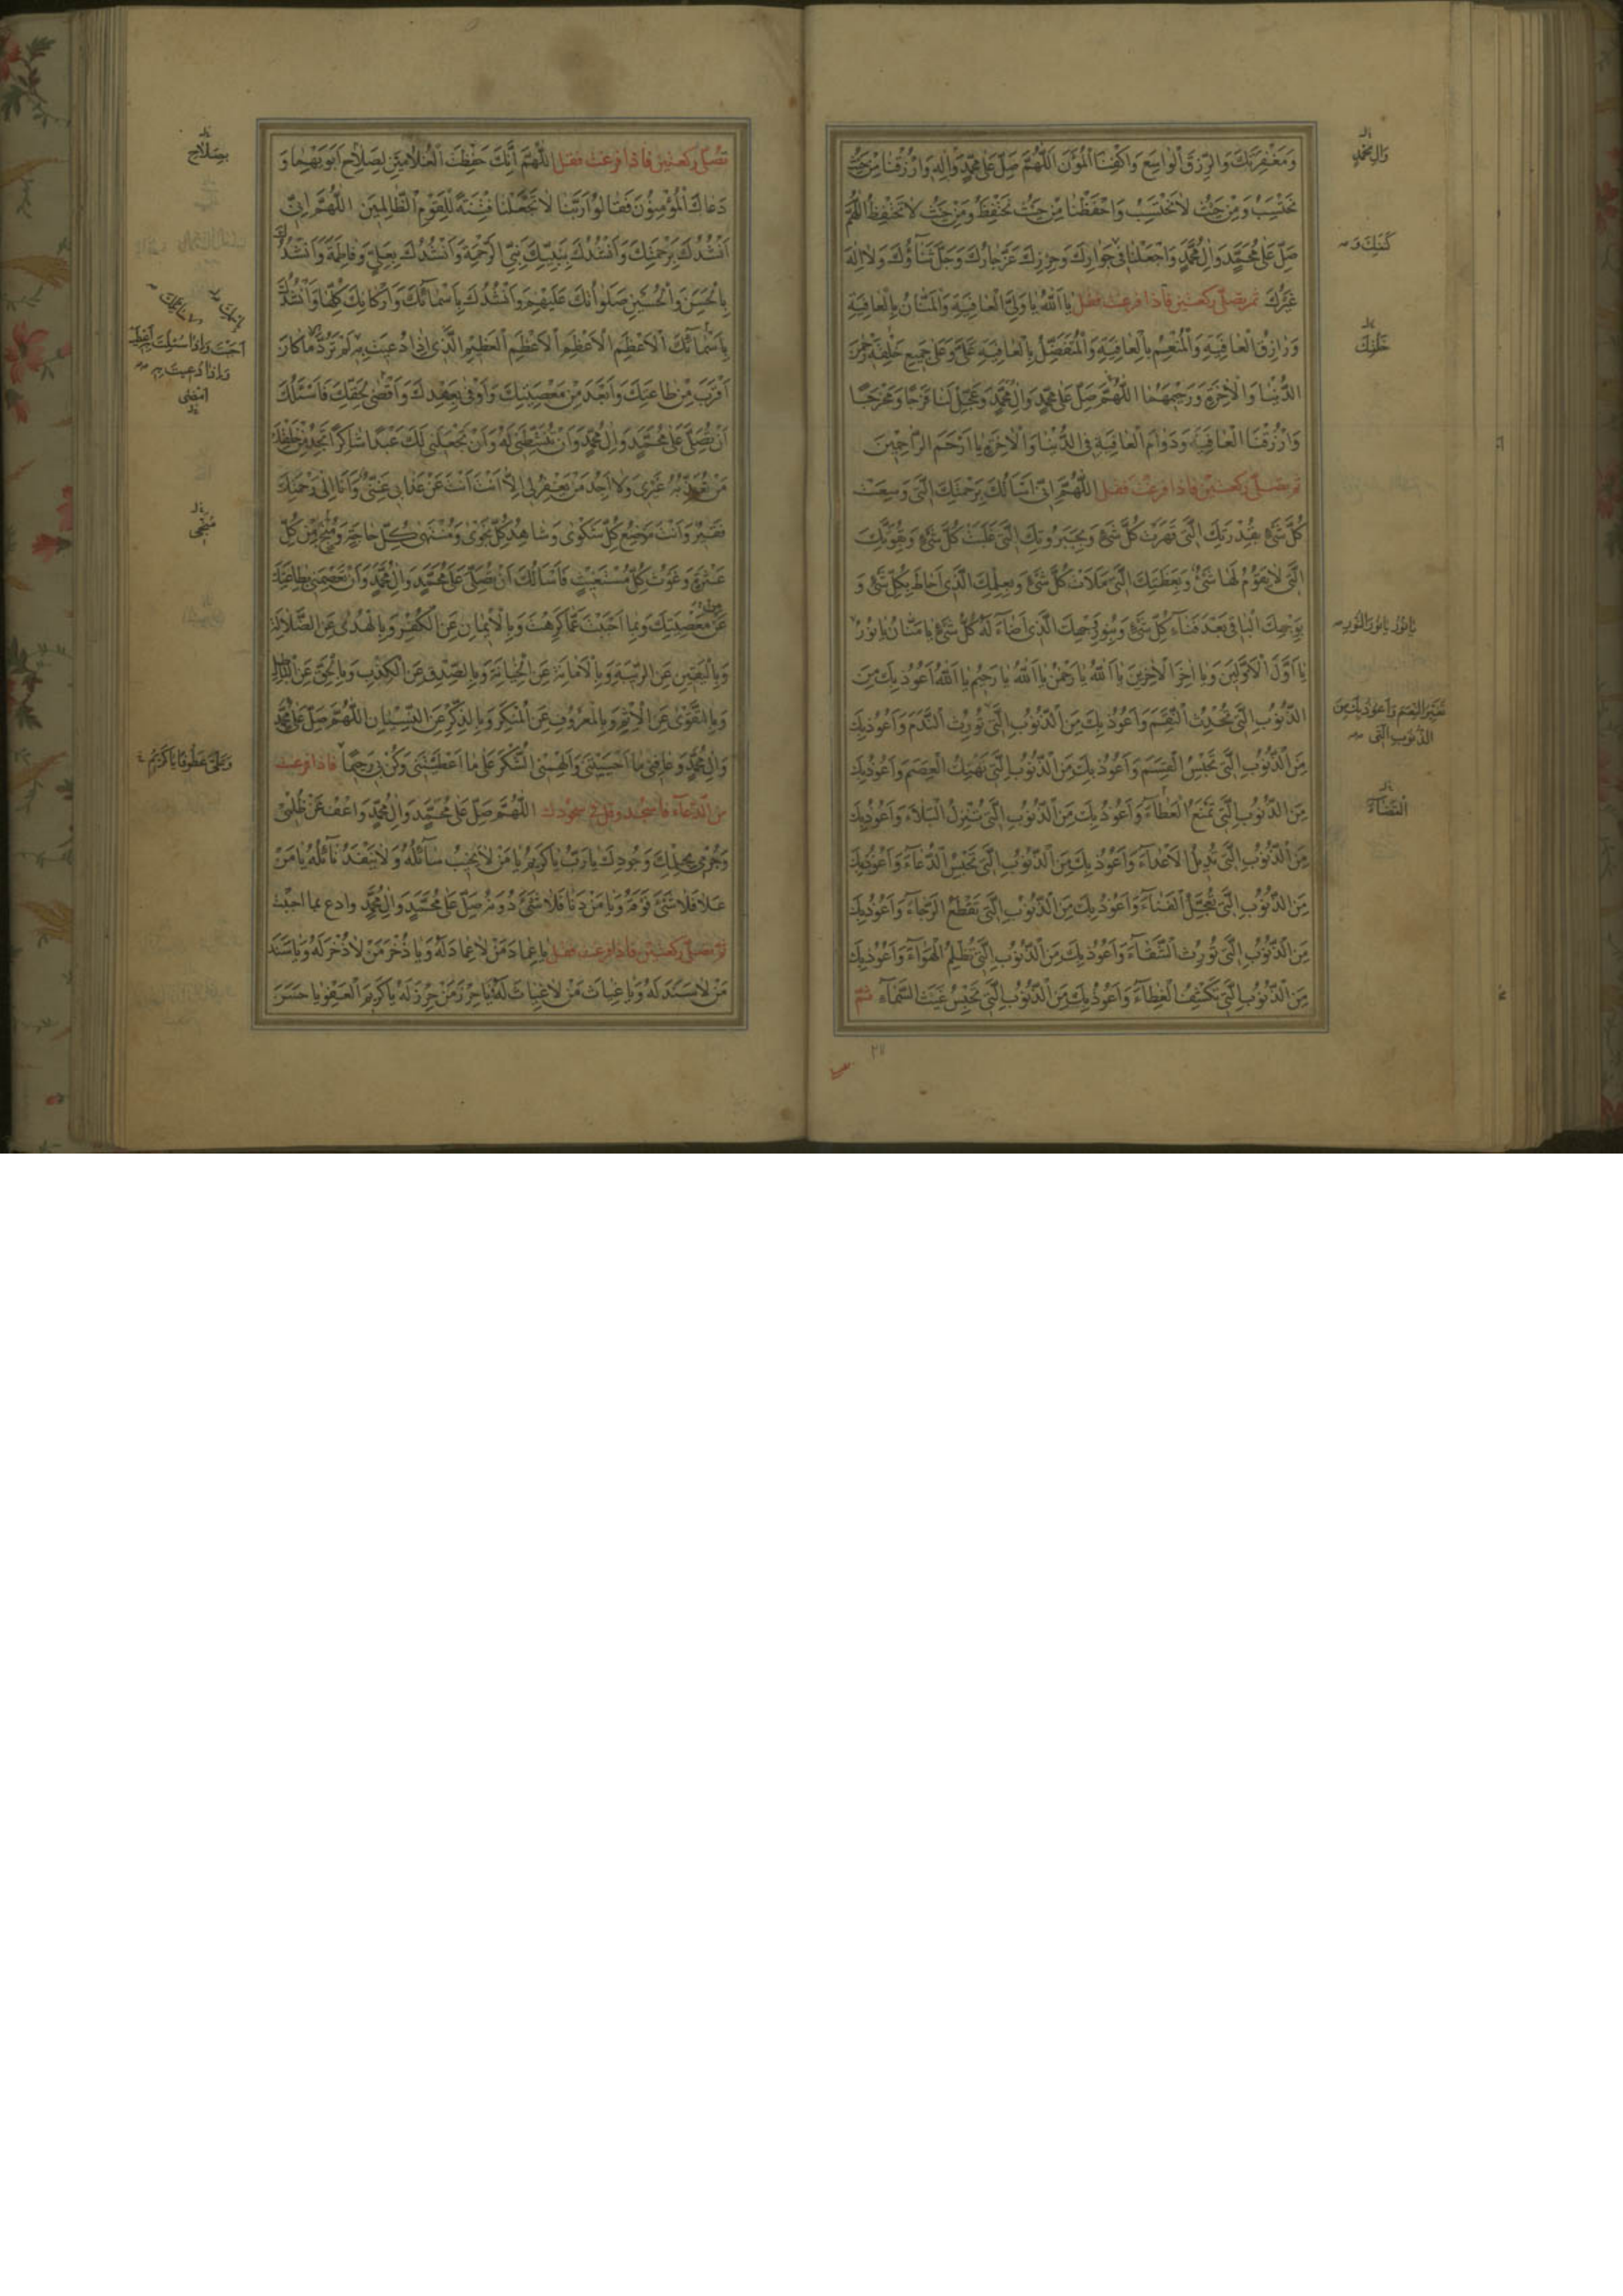 وَمَغْفِرَتِكَ وَالرِّزْقَ الْوَاسِعَ وَاكْفِنَا الْمُؤَنَ اَللّٰهُمَّ صَلِّ عَلٰى مُحَمَّدٍ وَاٰلِهِ وَارْزُقْنَا مِنْ حَيْثُ
نَحْتَسِبُ وَمِنْ حَيْثُ لَا نَحْتَسِبُ وَاحْفَظْنَا مِنْ حَيْثُ نَحْتَفِظُ وَمِنْ حَيْثُ لَا نَحْتَفِظُ اَللّٰهُمَّ
صَلِّ عَلٰى مُحَمَّدٍ وَاٰلِ مُحَمَّدٍ وَاجْعَلْنَا فِي جِوَارِكَ وَحِرْزِكَ عَزَّ جَارُكَ وَجَلَّ ثَنَاؤُكَ وَلَا اِلٰهَ
غَيْرُكَ ثم تصلى ركعتين فاذا فرغت فقل يَا اَللّٰهُ يَا وَلِيَّ الْعَافِيَةِ وَالْمَنَّانُ بِالْعَافِيَةِ
وَرَازِقُ الْعَافِيَةِ وَالْمُنْعِمُ بِالْعَافِيَةِ وَالْمُتَفَضِّلُ بِالْعَافِيَةِ عَلَيَّ وَعَلٰى جَمِيعِ خَلْقِهِ رَحْمٰنَ
الدُّنْيَا وَالْاٰخِرَةِ وَرَحِيمَهُمَا اَللّٰهُمَّ صَلِّ عَلٰى مُحَمَّدٍ وَاٰلِ مُحَمَّدٍ وَعَجِّلْ لَنَا فَرَجًا وَمَخْرَجًا
وَارْزُقْنَا الْعَافِيَةَ وَدَوَامَ الْعَافِيَةِ فِي الدُّنْيَا وَالْاٰخِرَةِ يَا اَرْحَمَ الرَّاحِمِينَ
ثم تصلى ركعتين فاذا فرغت فقل اَللّٰهُمَّ اِنِّي اَسْاَلُكَ بِرَحْمَتِكَ الَّتِي وَسِعَتْ
كُلَّ شَيْءٍ بِقُدْرَتِكَ الَّتِي قَهَرَتْ كُلَّ شَيْءٍ وَبِجَبَرُوتِكَ الَّتِي غَلَبَتْ كُلَّ شَيْءٍ وَبِقُوَّتِكَ
الَّتِي لَا يَقُومُ لَهَا شَيْءٌ وَبِعَظَمَتِكَ الَّتِي مَلَاَتْ كُلَّ شَيْءٍ وَبِعِلْمِكَ الَّذِي اَحَاطَ بِكُلِّ شَيْءٍ وَ
بِوَجْهِكَ الْبَاقِي بَعْدَ فَنَاءِ كُلِّ شَيْءٍ وَبِنُورِ وَجْهِكَ الَّذِي اَضَاءَ لَهُ كُلُّ شَيْءٍ يَا مَنَّانُ يَا نُورُ
يَا اَوَّلَ الْاَوَّلِينَ وَيَا اٰخِرَ الْاٰخِرِينَ يَا اَللّٰهُ يَا رَحْمٰنُ يَا اَللّٰهُ يَا رَحِيمُ يَا اَللّٰهُ اَعُوذُ بِكَ مِنَ
الذُّنُوبِ الَّتِي تُحْدِثُ النِّقَمَ وَاَعُوذُ بِكَ مِنَ الذُّنُوبِ الَّتِي تُورِثُ النَّدَمَ وَاَعُوذُ بِكَ
مِنَ الذُّنُوبِ الَّتِي تَحْبِسُ الْقِسَمَ وَاَعُوذُ بِكَ مِنَ الذُّنُوبِ الَّتِي تَهْتِكُ الْعِصَمَ وَاَعُوذُ بِكَ
مِنَ الذُّنُوبِ الَّتِي تَمْنَعُ الْعَطَاءَ وَاَعُوذُ بِكَ مِنَ الذُّنُوبِ الَّتِي تُنْزِلُ الْبَلَاءَ وَاَعُوذُ بِكَ
مِنَ الذُّنُوبِ الَّتِي تُدِيلُ الْاَعْدَاءَ وَاَعُوذُ بِكَ مِنَ الذُّنُوبِ الَّتِي تَحْبِسُ الدُّعَاءَ وَاَعُوذُ بِكَ
مِنَ الذُّنُوبِ الَّتِي تُعَجِّلُ الْفَنَاءَ وَاَعُوذُ بِكَ مِنَ الذُّنُوبِ الَّتِي تَقْطَعُ الرَّجَاءَ وَاَعُوذُ بِكَ
مِنَ الذُّنُوبِ الَّتِي تُورِثُ الشَّقَاءَ وَاَعُوذُ بِكَ مِنَ الذُّنُوبِ الَّتِي تُظْلِمُ الْهَوَاءَ وَاَعُوذُ بِكَ
مِنَ الذُّنُوبِ الَّتِي تَكْشِفُ الْغِطَاءَ وَاَعُوذُ بِكَ مِنَ الذُّنُوبِ الَّتِي تَحْبِسُ غَيْثَ السَّمَاءِ ثم
وَاٰلِ مُحَمَّدٍ
كَنَفِكَ وَ
خَلْقِكَ
يَا نُورُ يَا نُورَ النُّورِ
تُغَيِّرُ النِّعَمَ وَاَعُوذُ بِكَ مِنَ
الذُّنُوبِ الَّتِي
الْقَضَاءَ
تصلى ركعتين فاذا فرغت فقل اَللّٰهُمَّ اِنَّكَ حَفِظْتَ الْغُلَامَيْنِ لِصَلَاحِ اَبَوَيْهِمَا وَ
دَعَاكَ الْمُؤْمِنُونَ فَقَالُوا رَبَّنَا لَا تَجْعَلْنَا فِتْنَةً لِلْقَوْمِ الظَّالِمِينَ اَللّٰهُمَّ اِنِّي
اَنْشُدُكَ بِرَحْمَتِكَ وَاَنْشُدُكَ بِنَبِيِّكَ نَبِيِّ الرَّحْمَةِ وَاَنْشُدُكَ بِعَلِيٍّ وَفَاطِمَةَ وَاَنْشُدُكَ
بِالْحَسَنِ وَالْحُسَيْنِ صَلَوَاتُكَ عَلَيْهِمْ وَاَنْشُدُكَ بِاَسْمَائِكَ وَاَرْكَانِكَ كُلِّهَا وَاَنْشُدُكَ
بِاَسْمَائِكَ الْاَعْظَمِ الْاَعْظَمِ الْاَعْظَمِ الْعَظِيمِ الَّذِي اِذَا دُعِيتَ بِهِ لَمْ تَرُدَّ مَا كَانَ
اَقْرَبَ مِنْ طَاعَتِكَ وَاَبْعَدَ مِنْ مَعْصِيَتِكَ وَاَوْفٰى بِعَهْدِكَ وَاَقْضٰى لِحَقِّكَ فَاَسْئَلُكَ
اَنْ تُصَلِّيَ عَلٰى مُحَمَّدٍ وَاٰلِ مُحَمَّدٍ وَاَنْ تُنَشِّطَنِي لَهُ وَاَنْ تَجْعَلَنِي لَكَ عَبْدًا شَاكِرًا تَجِدُ مِنْ خَلْقِكَ
مَنْ تُعَذِّبُهُ غَيْرِي وَلَا اَجِدُ مَنْ يَغْفِرُ لِي اِلَّا اَنْتَ اَنْتَ عَنْ عَذَابِي غَنِيٌّ وَاَنَا اِلٰى رَحْمَتِكَ
فَقِيرٌ وَاَنْتَ مَوْضِعُ كُلِّ شَكْوٰى وَشَاهِدُ كُلِّ نَجْوٰى وَمُنْتَهٰى كُلِّ حَاجَةٍ وَمُنْجٍ مِنْ كُلِّ
عَثْرَةٍ وَغَوْثُ كُلِّ مُسْتَغِيثٍ فَاَسْاَلُكَ اَنْ تُصَلِّيَ عَلٰى مُحَمَّدٍ وَاٰلِ مُحَمَّدٍ وَاَنْ تَعْصِمَنِي بِطَاعَتِكَ
عَنْ مَعْصِيَتِكَ وَبِمَا اَحْبَبْتَ عَمَّا كَرِهْتَ وَبِالْاِيمَانِ عَنِ الْكُفْرِ وَبِالْهُدٰى عَنِ الضَّلَالَةِ
وَبِالْيَقِينِ عَنِ الرِّيبَةِ وَبِالْاَمَانَةِ عَنِ الْخِيَانَةِ وَبِالصِّدْقِ عَنِ الْكَذِبِ وَبِالْحَقِّ عَنِ الْبَاطِلِ
وَبِالتَّقْوٰى عَنِ الْاِثْمِ وَبِالْمَعْرُوفِ عَنِ الْمُنْكَرِ وَبِالذِّكْرِ عَنِ النِّسْيَانِ اَللّٰهُمَّ صَلِّ عَلٰى مُحَمَّدٍ
وَاٰلِ مُحَمَّدٍ وَعَافِنِي مَا اَحْيَيْتَنِي وَاَلْهِمْنِي الشُّكْرَ عَلٰى مَا اَعْطَيْتَنِي وَكُنْ بِي رَحِيمًا فاذا فرغت
من الدعاء فاسجد وقل في سجودك اَللّٰهُمَّ صَلِّ عَلٰى مُحَمَّدٍ وَاٰلِ مُحَمَّدٍ وَاعْفُ عَنْ ظُلْمِي
وَجُرْمِي بِحِلْمِكَ وَجُودِكَ يَا رَبِّ يَا كَرِيمُ يَا مَنْ لَا يَخِيبُ سَائِلُهُ وَلَا يَنْفَدُ نَائِلُهُ يَا مَنْ
عَلَا فَلَا شَيْءَ فَوْقَهُ وَيَا مَنْ دَنَا فَلَا شَيْءَ دُونَهُ صَلِّ عَلٰى مُحَمَّدٍ وَاٰلِ مُحَمَّدٍ وادع بما احببت
ثم تصلى ركعتين فاذا فرغت فقل يَا عِمَادَ مَنْ لَا عِمَادَ لَهُ وَيَا ذُخْرَ مَنْ لَا ذُخْرَ لَهُ وَيَا سَنَدَ
مَنْ لَا سَنَدَ لَهُ وَيَا غِيَاثَ مَنْ لَا غِيَاثَ لَهُ يَا حِرْزَ مَنْ لَا حِرْزَ لَهُ يَا كَرِيمَ الْعَفْوِ يَا حَسَنَ
بِصَلَاحِ
اَجَبْتَ وَاِذَا سُئِلْتَ
وَاِذَا دُعِيتَ بِهِ
اَمْضٰى
مُنْجِي